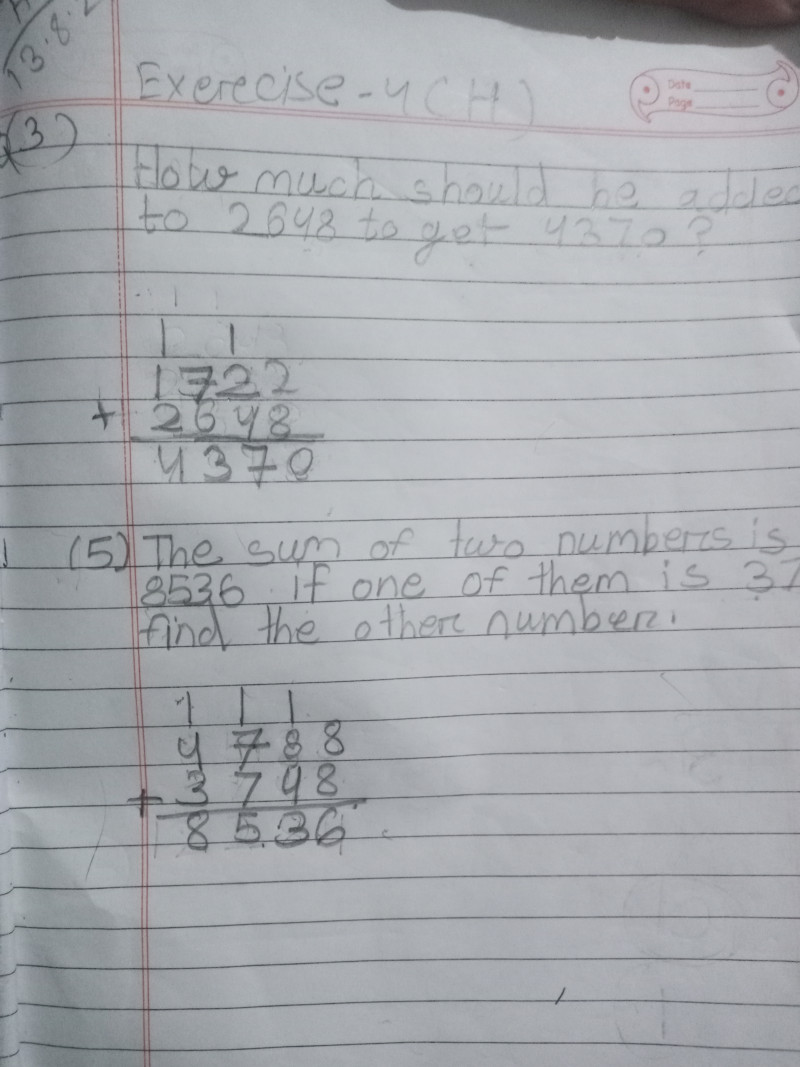 13.8.2
Exercise-4(H)
Date
Page
(3)
How much should be added
to 2648 to get 4370?
1 1
1722
+ 2648
4370
(5) The sum of two numbers is
8536. If one of them is 37
find the other number.
1 1 1
4788
+ 3748
8536